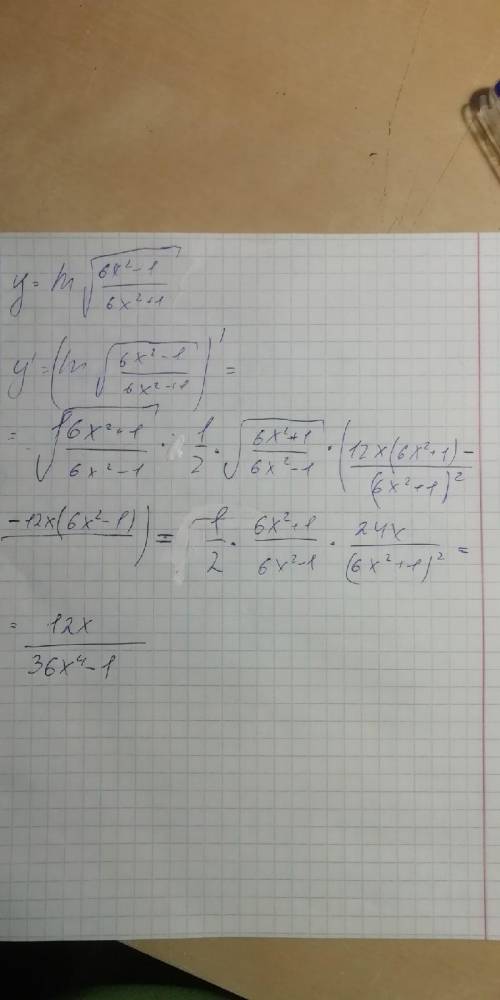 y = ln √((6x²-1)/(6x²+1))
y' = (ln √((6x²-1)/(6x²+1)))' =
= √((6x²+1)/(6x²-1)) · 1/2 · √((6x²+1)/(6x²-1)) · (12x(6x²+1)-/(6x²+1)²
-12x(6x²-1)) = 1/2 · (6x²+1)/(6x²-1) · 24x/(6x²+1)² =
= 12x/(36x⁴-1)